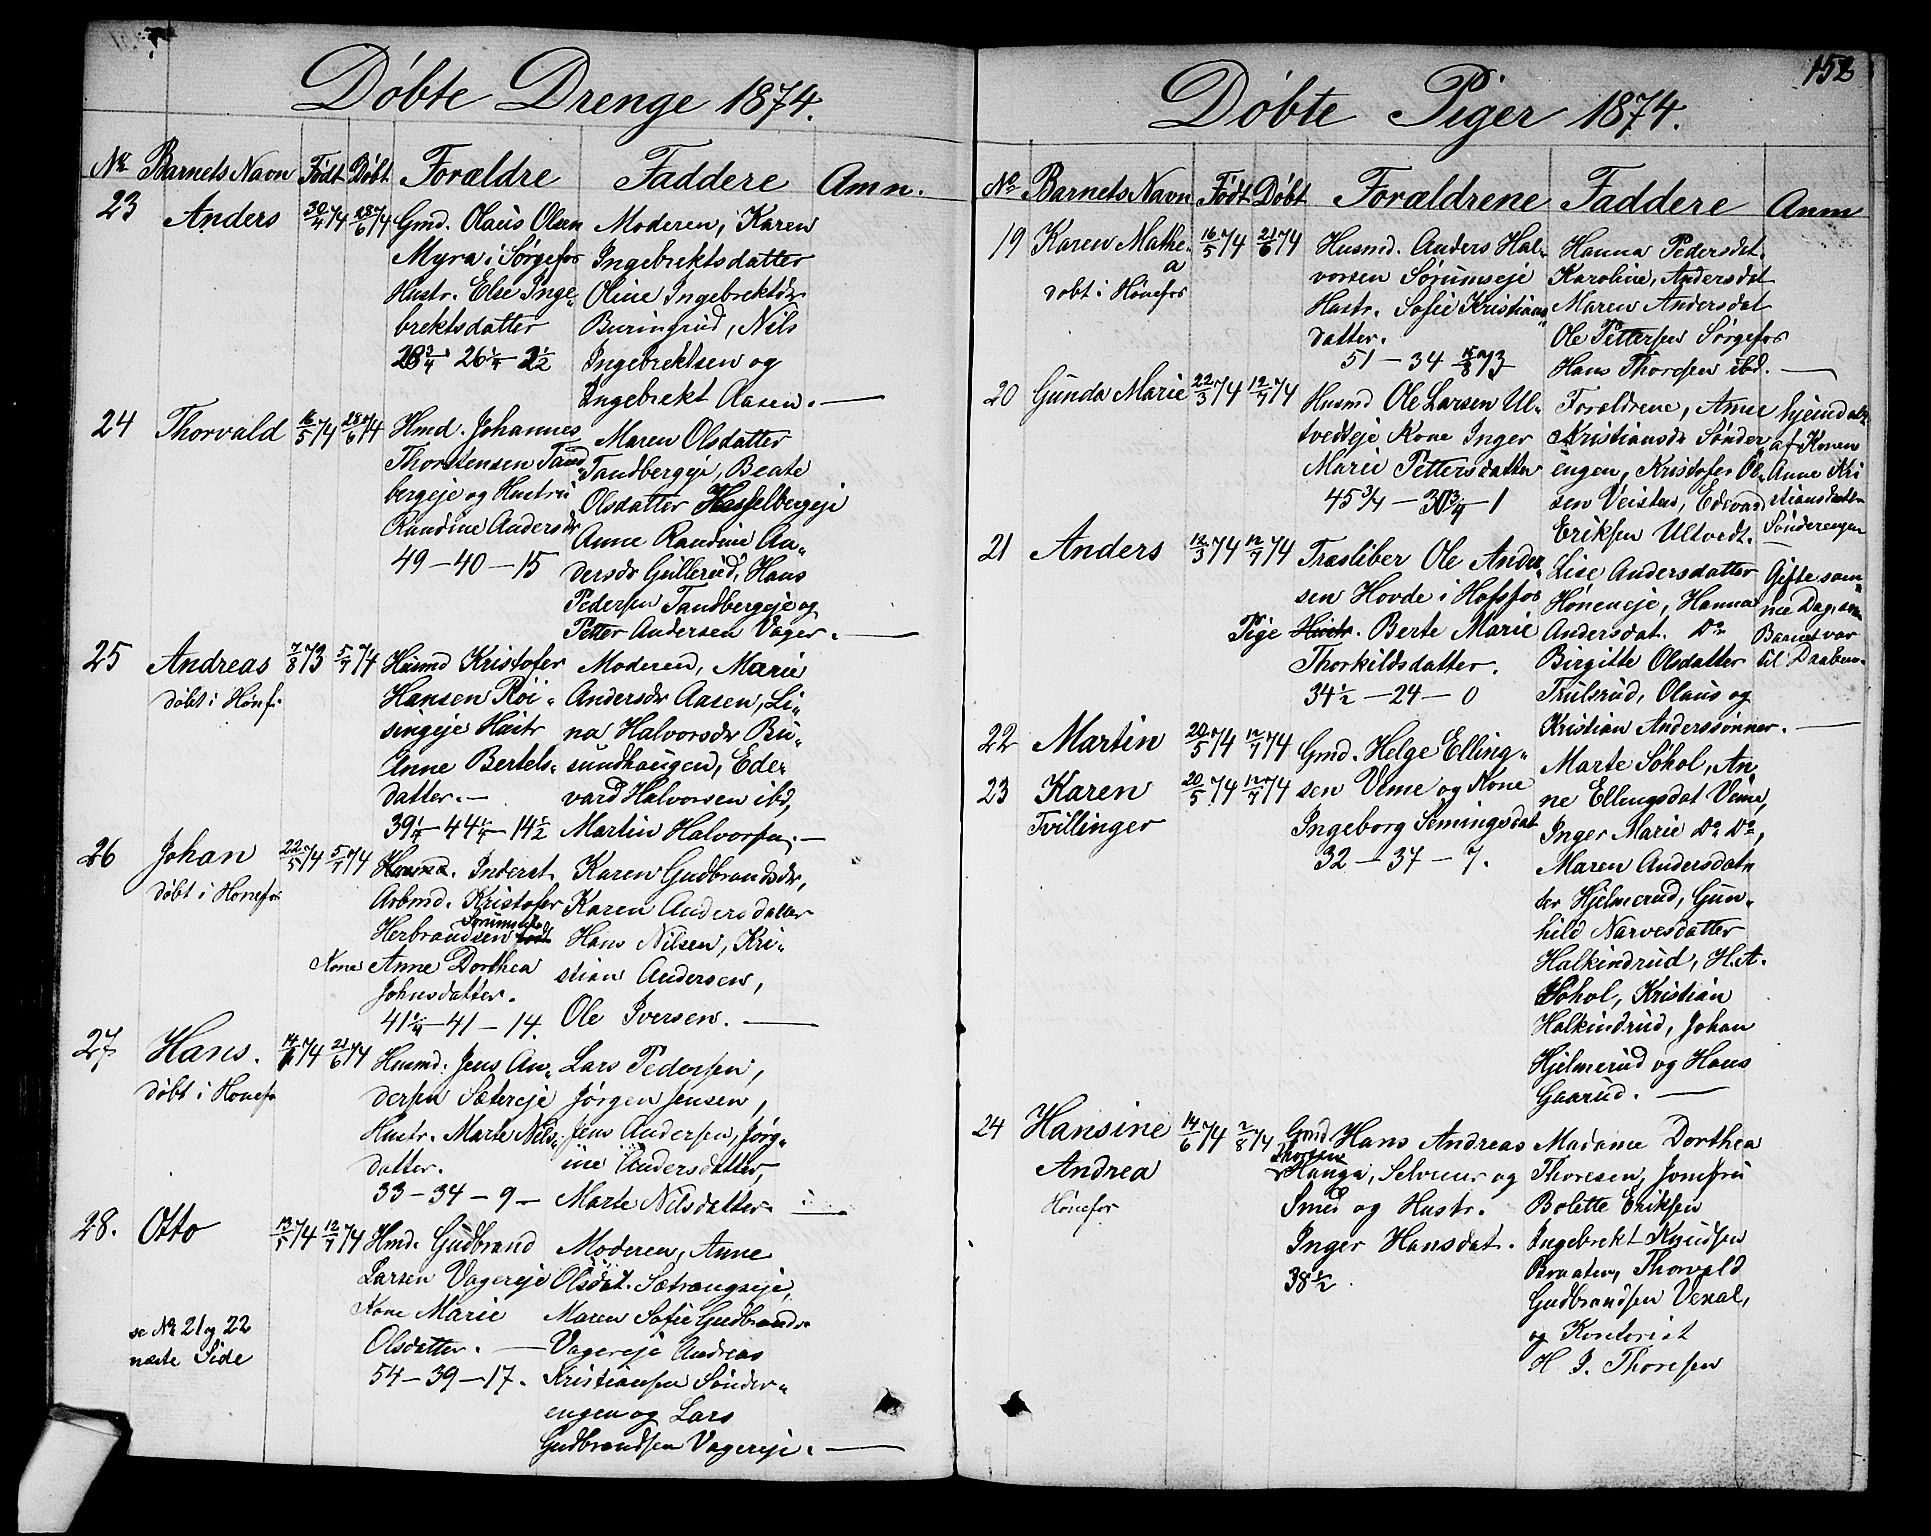 Døbte Drenge 1874.
Nr. Barnets Navn Født Døbt Forældre Faddere Anm.
23 Anders 30/4 74 28/6 74
Gmd. Olaus Olsen
Myra i Sørgefos
Hustr. Else Inge-
brektsdatter
28 3/4 26 1/4 - 2 1/2
Moderen, Karen
Ingebrektsdatter
Oline Ingebrektsdr
Buringrud, Nils
Ingebrektsen og
Ingebrekt Aasen.
24 Thorvald 16/5 74 28/6 74
Hmd. Johannes
Thorstensen Tand-
bergeje og Hustru
Randine Andersdr
49 - 40 - 15
Maren Olsdatter
Tandbergeje, Beate
Olsdatter Hasselbergeje
Anne Randine An-
dersdr Gullerud, Hans
Pedersen Tandbergeje og
Petter Andersen Vager.
25 Andreas 7/8 73 5/7 74
døbt i Hønf.
Husmd Kristofer
Hansen Røi-
singeje Hustr
Anne Bertels-
datter.
39 1/4 - 44 1/4 - 14 1/2
Moderen, Marie
Andersdr Aasen, Li-
na Halvorsdr Bu-
sundhaugen, Ede-
vard Halvorsen ibd,
Martin Halvorsen.
26 Johan 22/5 74 5/7 74
døbt i Hønefos
Inderst.
Arbmd. Kristofer
Herbrandsen
Kone Anne Dorthea
Johnsdatter.
41 1/4 - 41 - 14.
Karen Gudbrandsdr,
Karen Andersdatter
Hans Nilsen, Kri-
stian Andersen,
Ole Iversen.
27 Hans. 14/6 74 21/6 74
døbt i Hønefos
Husmd. Jens An-
dersen Sætereje
Hustr. Marte Nils-
datter.
33 - 34 - 9
Lars Pedersen,
Jørgen Jensen,
Jens Andersen, Jørg-
ine Andersdatter,
Marte Nilsdatter.
28. Otto 13/5 74 12/7 74
Hmd. Gudbrand
Larsen Vagereje
Kone Marie
Olsdatter.
54 - 39 - 17.
Moderen, Anne
Olsdat. Sætrangseje,
Maren Sofie Gudbrandsdr
Vagereje Andreas
Kristiansen Sønder-
engen og Lars
Gudbrandsen Vagereje.
se No 21 og 22
næste Side
152
Døbte Piger 1874.
No Barnets Navn Født Døbt Forældrene Faddere Anm
19 Karen Mathe-
a 16/5 74 21/6 74
døbt i Hønefos
Husmd. Anders Hal-
vorsen Sørumseje
Hustr. Sofie Kristians-
datter.
51 - 34 15/8 73
Hanna Pedersdt.
Karoline, Andersdat
Maren Andersdat
Ole Pettersen Sørgefos
Hans Thoresen ibd.
20 Gunda Marie 22/3 74 12/7 74
Husmd Ole Larsen Ul-
tvedteje Kone Inger
Marie Pettersdatter
45 3/4 - 30 3/4 - 1
Forældrene, Anne
Kristiansdr Sønder-
engen, Kristofer Ol-
sen Veisten, Edevard
Eriksen Ultvedt.
hjemdøbt
af Konen
Anne Kri
stiansdatter
Sønderengen
21 Anders 12/3 74 12/7 74
Træsliber Ole Ander-
sen Hovde i Hofsfos
Pige Hustr. Berte Marie
Thorkildsdatter.
34 1/2 - 24 - 0
Lise Andersdatter
Høneneje, Hanna
Andersdat. Do
Birgitte Olsdatter
Trulsrud, Olaus og
Kristian Anderssønner.
Gifte sam-
me Dag, som
Barnet var
til Daaben.
22 Martin 20/5 74 12/7 74
23 Karen 20/5 74 12/7 74
Tvillinger
Gmd. Helge Elling-
sen Veme og Kone
Ingeborg Semingsdat
32 - 37 - 7.
Marte Sohol, An-
ne Ellingsdat Veme,
Inger Marie Do Do,
Maren Andersdat-
ter Hjelmerud, Gun-
hild Narvesdatter
Halkindrud, H.A.
Sohol, Kristian
Halkindrud, Johan
Hjelmerud og Hans
Gaarud.
24 Hansine 14/6 74 2/8 74
Andrea
Hønefos
Gmd Hans Andreas
Thoresen
Hauga, Selveier og
Smed og Hustr.
Inger Hansdat.
38 1/2
Madame Dorthea
Thoresen, Jomfru
Bolette Eriksen
Ingebrekt Knudsen
Braaten, Thorvald
Gudbrandsen Vexal,
og Kontorist
H. J. Thoresen